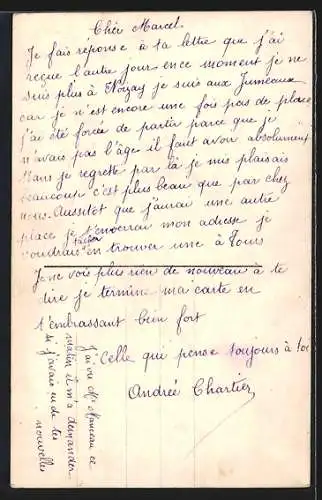 Chér Marcel.
Je fais réponse à ta lettre que j'ai
reçue l'autre jour en ce moment je ne
suis plus à Nozay je suis aux Jumeaux
car je n'est encore une fois pas de place
j'ai été forcée de partir parce que je
n'avais pas l'âge il faut avoir absolument
ans je regrette par là je mis plaisais
beaucoup c'est plus beau que par chez
nous. Aussitôt que j'aurai une autre
place je t'enverrai mon adresse je
voudrais tacher en trouver une à Tours
Je ne vois plus rien de nouveau à te
dire je termine ma carte en
t'embrassant bien fort
Celle qui pense toujours à toi
Andrée Chartier
J'ai vu Mr Manceau ce
matin il m'a demandé
si j'avais eu de tes
nouvelles